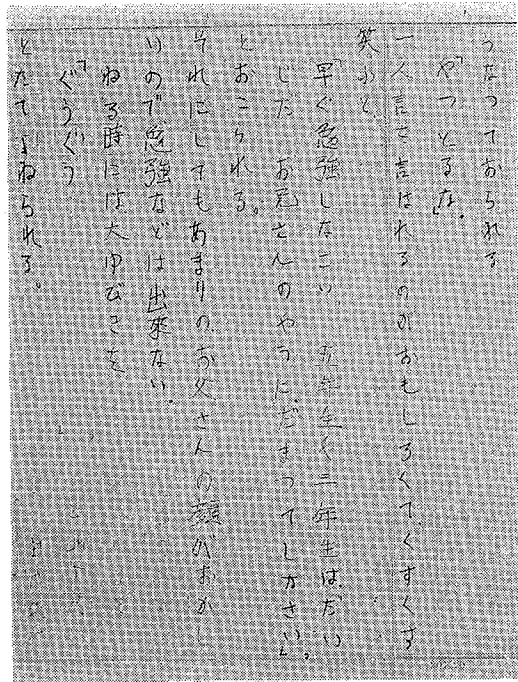 うなつておられる
「やつとるな」。
一人言を言はれるのがおもしろくて、くすくす
笑ふと、
「早く勉強しなさい、五年生と二年生は、だい
じだ、お兄さんのやうに、だまつてしなさい」。
とおこられる。
それにしてもあまりの、お父さんの顔がおかし
いので勉強などは出來ない。
ねる時には大いびきを
「ぐうぐう
とたてゝねられる。